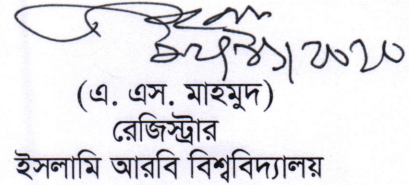 (এ. এস. মাহমুদ)
রেজিস্ট্রার
ইসলামি আরবি বিশ্ববিদ্যালয়